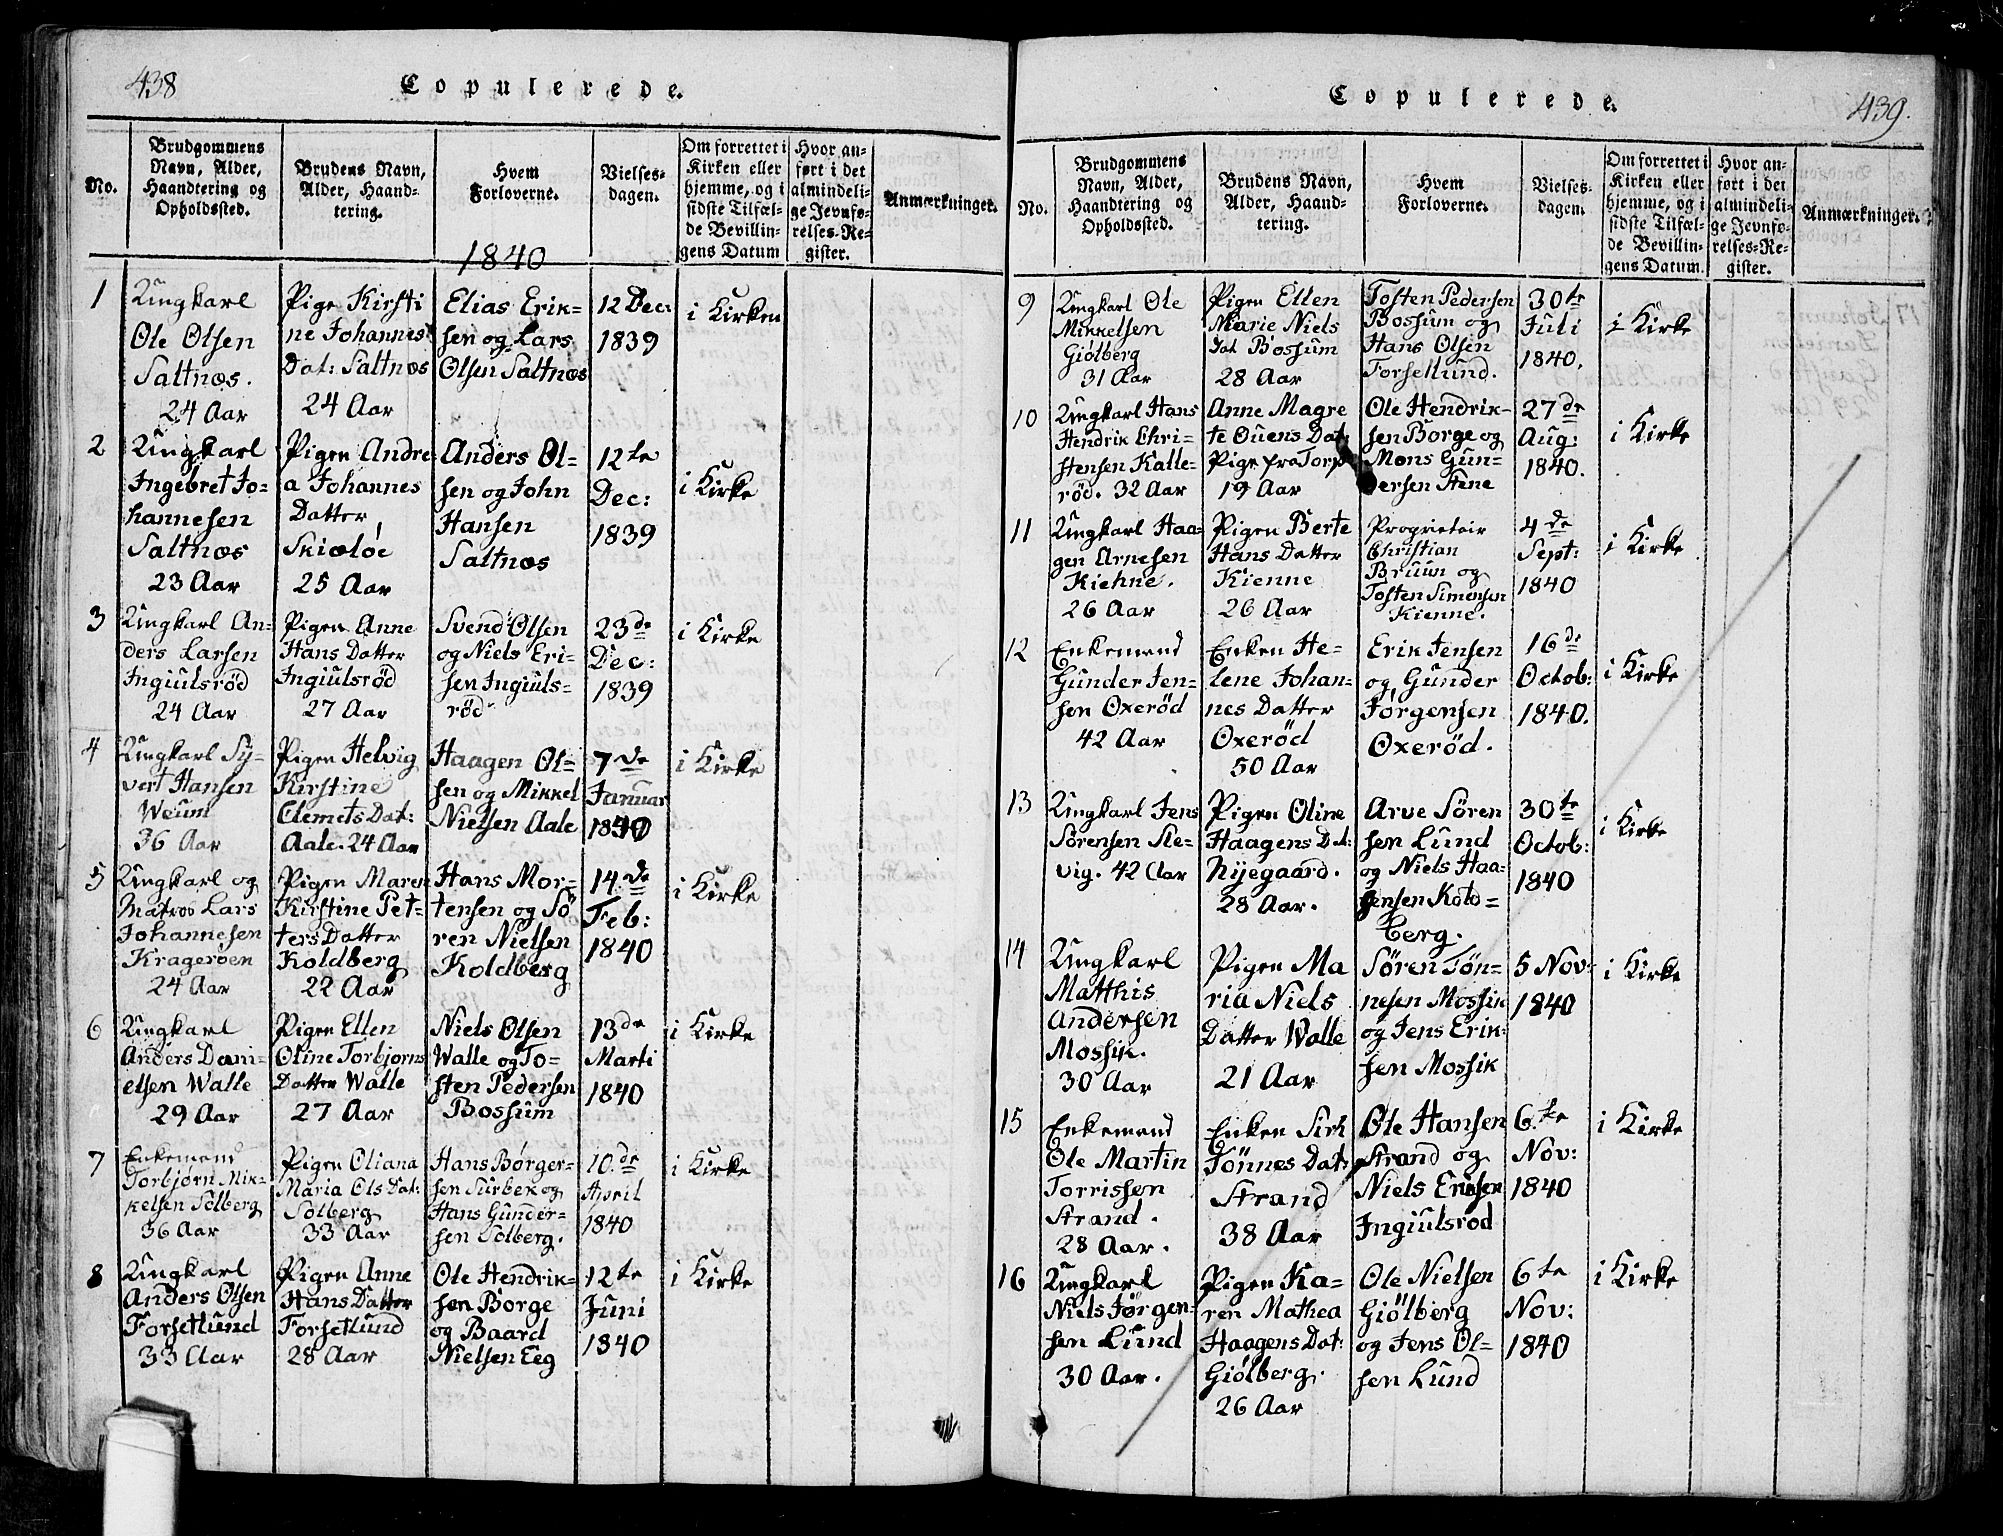 438
Copulerede.
No.
Brudgommens
Navn, Alder,
Haandtering og
Opholdssted.
Brudens Navn,
Alder, Haand-
tering.
Hvem
Forloverne.
Vielses-
dagen.
Om forrettet i
Kirken eller
hjemme, og i
sidste Tilfæl-
de Bevillin-
gens Datum
Hvor an-
ført i det
almindeli-
ge Jevnfø-
relses-Re-
gister.
Anmærkninger.
1840
1
Ungkarl
Ole Olsen
Saltnæs.
24 Aar
Pige Kirsti
ne Johannes
Dat: Saltnæs
24 Aar
Elias Erik-
sen og Lars
Olsen Saltnæs
12 Dec:
1839
i Kirken
2
Ungkarl
Ingebret Jo-
hannesen
Saltnæs
23 Aar
Pigen Andre
a Johannes
Datter
Skiæløe
25 Aar
Anders Ol-
sen og John
Hansen
Saltnæs
12te
Dec:
1839
i Kirke
3
Ungkarl An-
ders Larsen
Ingiulsröd
24 Aar
Pigen Anne
Hans Datter
Ingiulsröd
27 Aar
Svend Olsen
og Niels Eri-
sen Ingiuls-
röd
23de
Dec:
1839
i Kirke
4
Ungkarl Sy-
vert Hansen
Weum
36 Aar
Pigen Helvig
Kirstine
Clemets Dat:
Aale. 24 Aar
Haagen Ol-
sen og Mikkel
Nielsen Aale
7de
Januar
1840
i Kirke
5
Ungkarl og
Matros Lars
Johannesen
Krageröen
24 Aar
Pigen Maren
Kirstine Pet-
ters Datter
Koldberg
22 Aar
Hans Mor-
tensen og Sö
ren Nielsen
Koldberg
14.de
Feb:
1840
i Kirke
6
Ungkarl
Anders Dani-
elsen Walle
29 Aar
Pigen Ellen
Oline Torbjørns
Datter Walle
27 Aar
Niels Olsen
Walle og To-
sten Pedersen
Bossum
13de
Marti
1840
i Kirke
7
Enkemand
Torbjørn Mik-
kelsen Solberg
36 Aar
Pigen Oliana
Maria Ols Dat:
Solberg
33 Aar
Hans Børger-
sen Surbek og
Hans Gunder-
sen Solberg.
10.de
April
1840
i Kirke
8
Ungkarl
Anders Olsen
Forsetlund
33 Aar
Pigen Anne
Hans Datter
Forsetlund
28 Aar
Ole Hendrik-
sen Borge
og Baard
Nielsen Eeg
12te
Juni
1840
i Kirke
Copulerede.
439.
No.
Brudgommens
Navn, Alder,
Haandtering og
Opholdssted.
Brudens Navn,
Alder, Haand-
tering.
Hvem
Forloverne.
Vielses-
dagen.
Om forrettet i
Kirken eller
hjemme, og i
sidste Tilfæl-
de Bevillin-
gens Datum.
Hvor an-
ført i det
almindeli-
ge Jevnfø-
relses-Re-
gister.
Anmærkninger.
9
Ungkarl Ole
Mikkelsen
Giölberg
31 Aar
Pigen Ellen
Marie Niels
Dat Bossum
28 Aar
Tosten Pedersen
Bossum og
Hans Olsen
Forsetlund.
30te
Juli
1840.
i Kirke
10
Ungkarl Hans
Hendrik Chri-
stensen Kalle-
röd. 32 Aar
Anne Magre
te Ouens Dat:
Pige fra Torp
19 Aar
Ole Hendrik-
sen Borge og
Mons Gun-
dersen Stene
27de
Aug:
1840.
i Kirke
11
Ungkarl Haa-
gen Arnesen
Kiehne.
26 Aar
Pigen Berte
Hans Datter
Kienne
26 Aar
Proprietair
Christian
Bruun og
Tosten Simensen
Kienne.
4de
Sept:
1840
i Kirke
12
Enkemand
Gunder Jen-
sen Oxeröd
42 Aar
Enken He-
lene Johan-
nes Datter
Oxeröd
50 Aar
Erik Jensen
og Gunder
Jörgensen
Oxeröd.
16de
Octob:
1840.
i Kirke
13
Ungkarl Jens
Sörensen Sle-
vig. 42 Aar
Pigen Oline
Haagens Dat:
Nyegaard.
28 Aar.
Arve Sören
sen Lund
og Niels Haa-
gensen Kold-
berg.
30te
Octob:
1840
i Kirke
14
Ungkarl
Matthis
Andersen
Mossik.
30 Aar
Pigen Ma
ria Niels
Datter Walle
21 Aar
Sören Tön-
nesen Mossik
og Jens Erik-
sen Mossik
5 Nov:
1840
i Kirke
15
Enkemand
Ole Martin
Torrissen
Strand.
28 Aar.
Enken Siri
Tönnes Dat:
Strand
38 Aar
Ole Hansen
Strand og
Niels Ericsen
Ingiulsrod
6.te
Nov:
1840
i Kirke
16
Ungkarl
Niels Jørgen-
sen Lund
30 Aar.
Pigen Ka-
ren Mathea
Haagens Dat:
Giölberg.
26 Aar
Ole Nielsen
Giölberg
og Jens Ol-
sen Lund
6te
Nov:
1840
i Kirke